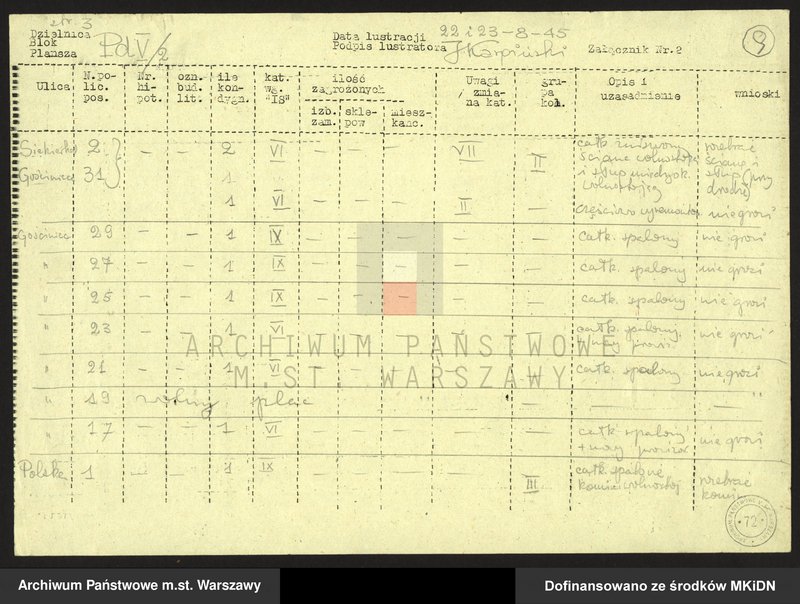 str. 3
Dzielnica
Blok
Plansza
Pd V/2
Data lustracji 22 i 23-8-45
Podpis lustratora
Załącznik Nr.2
9
Ulica
N.po-
lic.
pos.
Nr.
hi-
pot.
ozn.
bud.
lit.
ile
kon-
dygn.
kat.
wg.
"IS"
ilość
zagrożonych
izb.
zam.
skle-
pow
miesz-
kanc.
Uwagi
/ zmia-
na kat.
gru-
pa
kol.
Opis i
uzasadnienie
wnioski
2 — — 2 VI — — — VII II
Gościniec 31 1
ściana
rozebrać
ścianę i
słup (przy
drodze)
1 VI — — — II — częściowo nie grozi
Gościniec 29 — — 1 IX — — — — — całk. spalony nie grozi
" 27 — — 1 IX — — — — — całk. spalony nie grozi
" 25 — — 1 IX — — — — — całk. spalony nie grozi
" 23 — — 1 VI — — — — — całk. spalony, nie grozi
" 21 — — 1 VI — — — — — całk. spalony nie grozi
" 19 wolny plac — — — "
" 17 — — 1 VI — — — — — całk. spalony nie grozi
Polska 1 — — 1 IX — — — — III całk. spalone
rozebrać
komin
72
ARCHIWUM PAŃSTWOWE
M.ST. WARSZAWY
Archiwum Państwowe m.st. Warszawy
Dofinansowano ze środków MKiDN